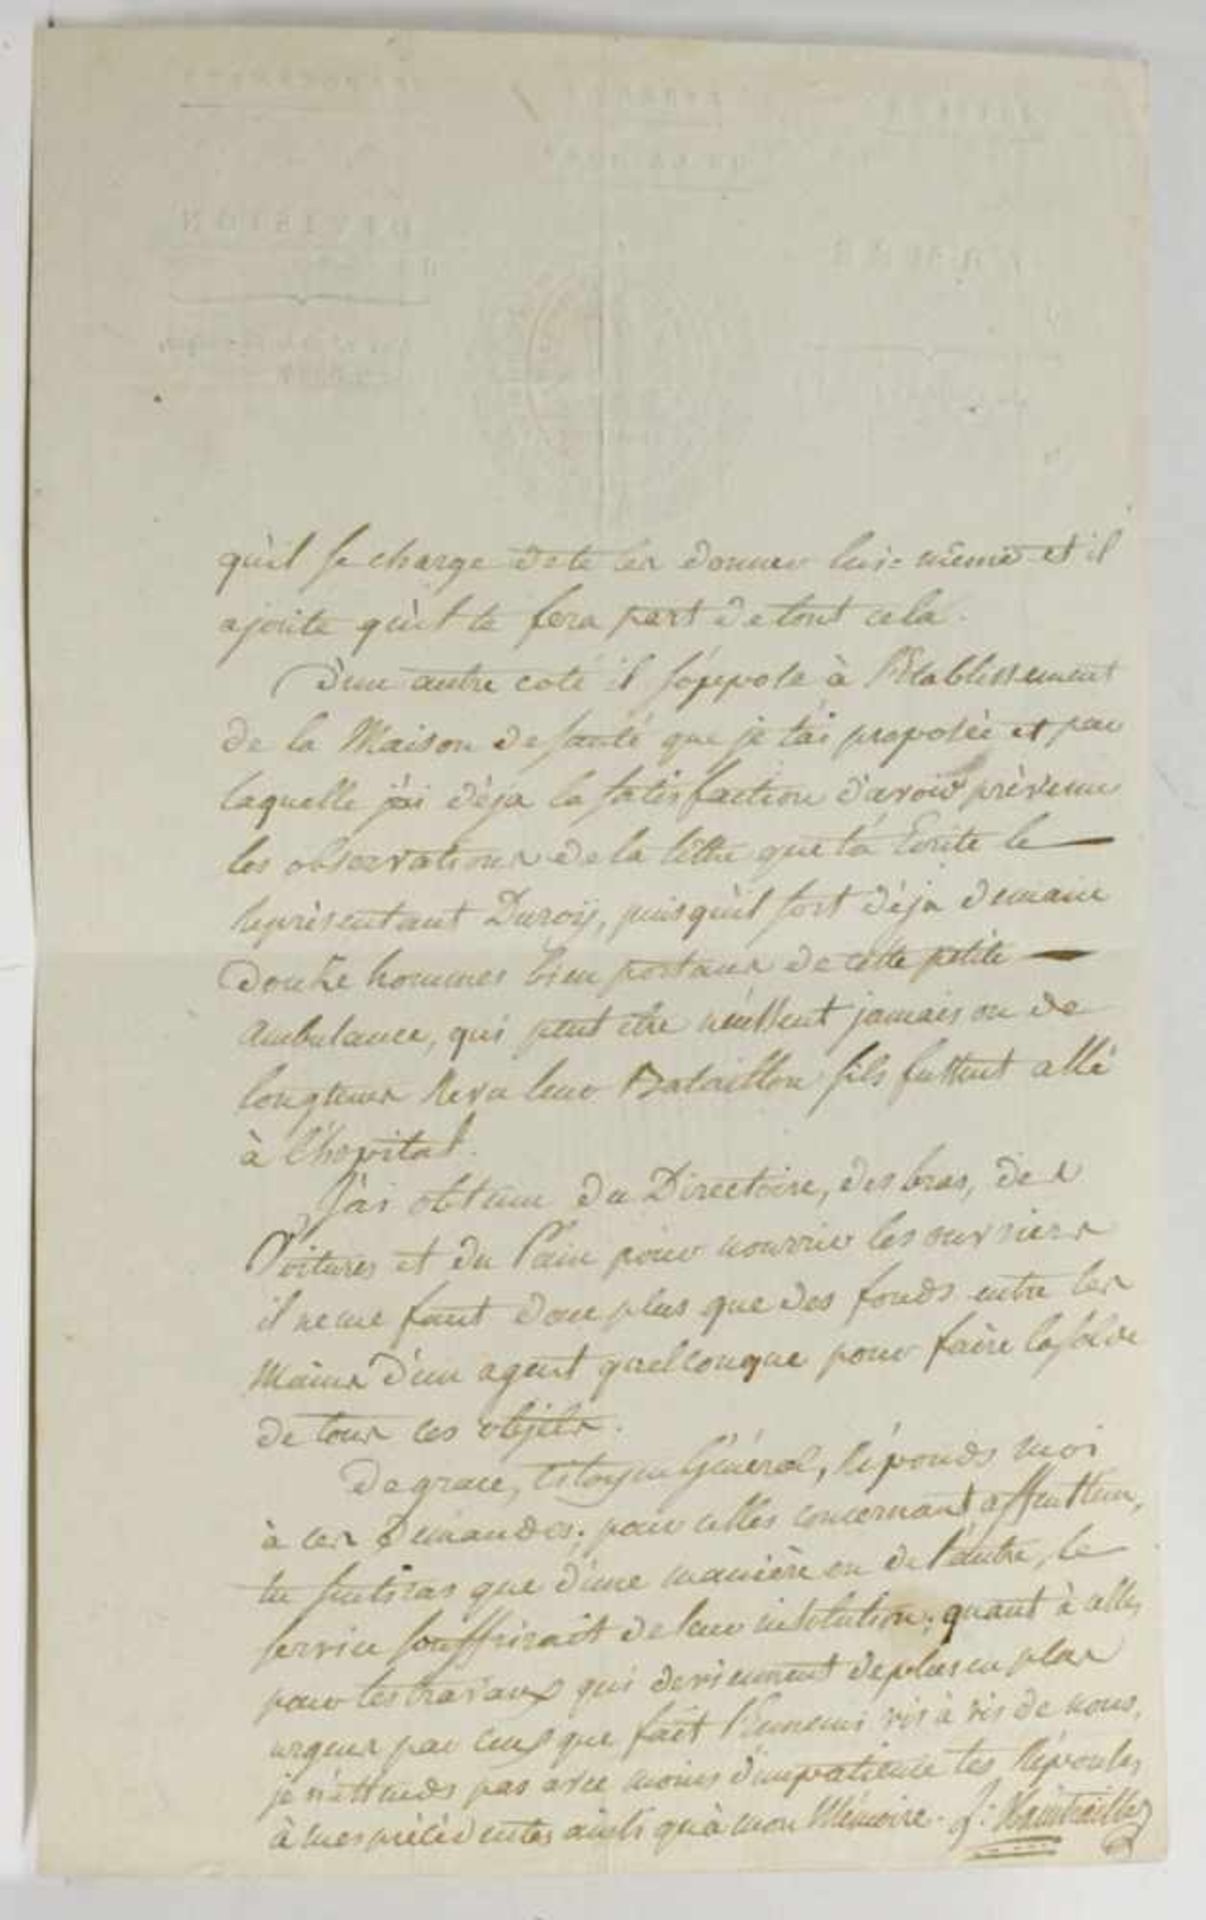 qu'il se charge de te les donner lui-même et il
ajoute qu'il te fera part de tout cela.
D'un autre coté il s'oppose à l'Etablissement
de la Maison de santé que je t'ai proposée et par
laquelle j'ai déja la satisfaction d'avoir prévenu
les observations de la lettre que t'a Ecrite le
représentant Duroy, puisqu'il sort déja demain
douze hommes bien portans de cette petite
ambulance, qui peut être n'eussent jamais ou de
longtems revu leur Bataillon s'ils fussent allé
à l'hopital.
J'ai obtenu du Directoire, des bras, des
Voitures et du Pain pour nourrir les ouvriers
il ne me faut donc plus que des fonds entre les
mains d'un agent quelconque pour faire la solde
de tous ces objets.
De grace, Citoyen Général, réponds moi
à ces demandes; pour celles concernant
tu sentiras que d'une manière ou de l'autre, le
service souffrirait de leur ; quant à celles
pour les travaux qui deviennent de plus en plus
urgens par ceux que fait l'Ennemi vis à vis de nous,
je n'attends pas avec moins d'impatience tes réponses
à mes précédentes ainsi qu'à mon Mémoire. J: Xaintrailles